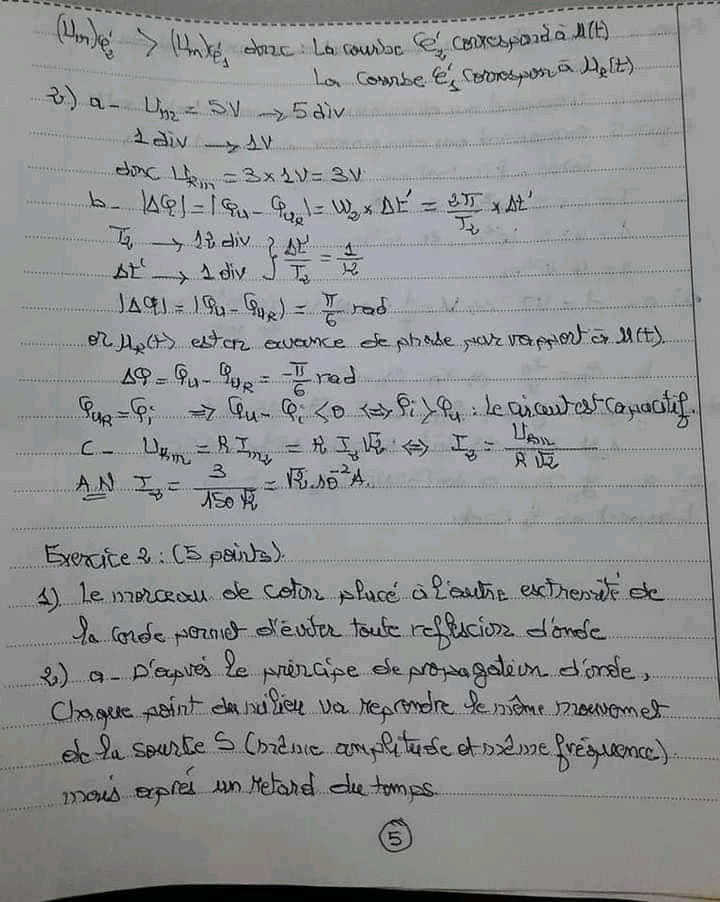 (Um)𝒞'₂ > (Um)𝒞'₁ donc : La courbe 𝒞'₂ correspond à u(t)
La courbe 𝒞'₁ correspon à u_R(t)
2) a - Um = 5V → 5 div
1 div → 1V
donc U_Rm = 3 x 1V = 3V
b - |Δφ| = |φu - φu_R| = ω₂ x Δt' = 2π/T₂ x Δt'
T₂ → 12 div } Δt'/T₂ = 1/12
Δt' → 1 div
|Δφ| = |φu - φu_R| = π/6 rad
or u_R(t) est en avance de phase par rapport à u(t).
Δφ = φu - φu_R = -π/6 rad
φu_R = φi ⇒ φu - φi < 0 ⇔ φi > φu : le circuit est capacitif.
C - U_Rm = R Im₂ = R I₂ √2 ⇔ I₂ = U_Rm / R√2
AN I₂ = 3 / 150√2 = √2.10⁻² A.
Exercice 2 : (5 points).
1) Le morceau de coton placé à l'autre extremité de
la corde permet d'éviter toute reflexion d'onde
2) a - D'après le principe de propagation d'onde,
Chaque point du milieu va reprendre le même mouvemet
de la source S (même amplitude et même fréquence)
mais après un retard du temps.
5